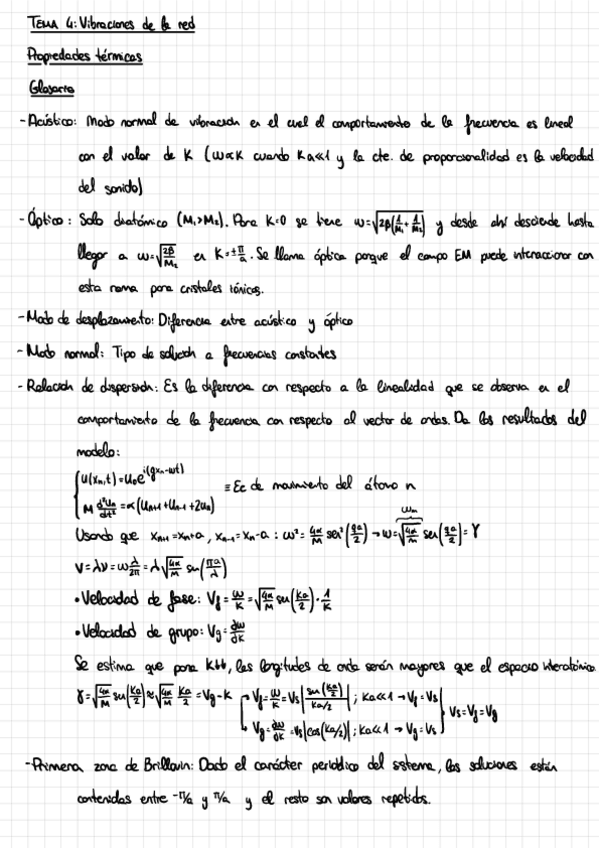 TEMA 4: Vibraciones de la red
Propiedades térmicas
Glosario
- Acústico: Modo normal de vibración en el cual el comportamiento de la frecuencia es lineal
con el valor de K (ω∝K cuando Ka≪1 y la cte. de proporcionalidad es la velocidad
del sonido)
- Óptico: Solo diatómico (M₁>M₂). Para K=0 se tiene ω=√(2β(1/M₁+1/M₂)) y desde ahí desciende hasta
llegar a ω=√(2β/M₂) en K=±π/a. Se llama óptica porque el campo EM puede interaccionar con
esta rama para cristales iónicos.
- Modo de desplazamiento: Diferencia entre acústico y óptico
- Modo normal: Tipo de solución a frecuencias constantes
- Relación de dispersión: Es la diferencia con respecto a la linealidad que se observa en el
comportamiento de la frecuencia con respecto al vector de ondas. Da los resultados del
modelo:
{u(xₙ,t)=u₀e^{i(qxₙ-ωt)}
{M d²uₙ/dt² = α(uₙ₊₁+uₙ₋₁+2uₙ) ≡ Ec de movimiento del átomo n
Usando que xₙ₊₁=xₙ+a, xₙ₋₁=xₙ-a : ω²=4α/M sen²(qa/2) → ω=√(4α/M) sen(qa/2)=γ
ωₘ
V=λν=ω λ/2π=λ√(4α/M) sen(πa/λ)
• Velocidad de fase: V_f=ω/K=√(4α/M) sen(Ka/2)·1/K
• Velocidad de grupo: Vg=∂ω/∂K
Se estima que para K↓↓, las longitudes de onda serán mayores que el espacio interatómico
γ=√(4α/M) sen(Ka/2)≈√(4α/M) Ka/2=Vg·K
V_f=ω/K=Vs|sen(Ka/2)/(Ka/2)| ; Ka≪1 → V_f=Vs
Vg=∂ω/∂K=Vs|cos(Ka/2)| ; Ka≪1 → Vg=Vs
Vs=V_f=Vg
- Primera zona de Brillouin: Dado el carácter periódico del sistema, las soluciones están
contenidas entre -π/a y π/a y el resto son valores repetidos.